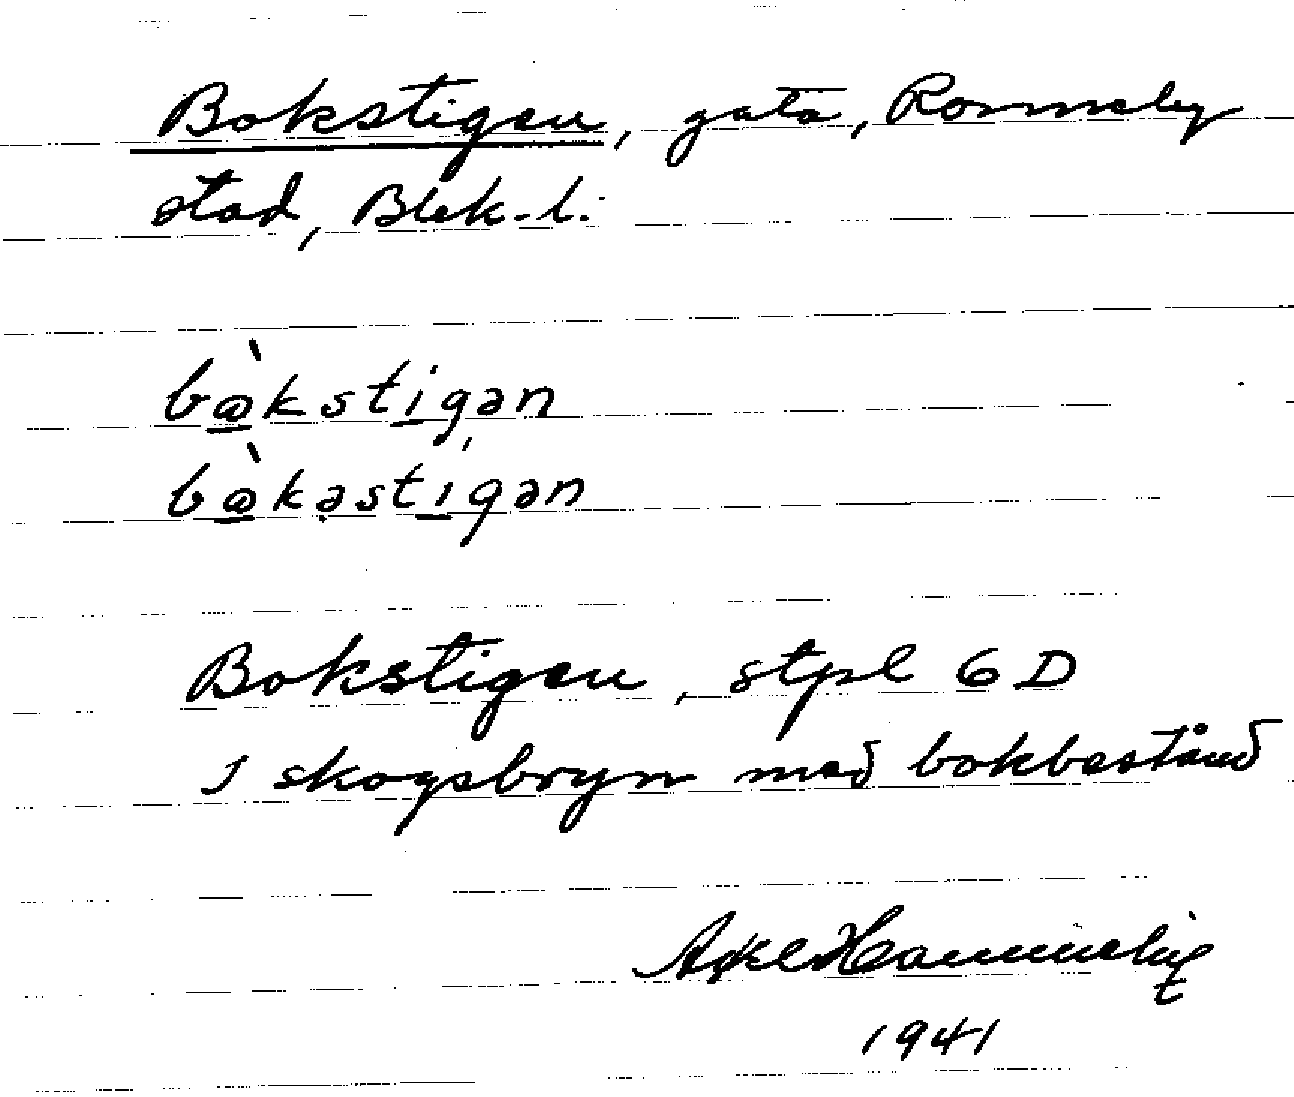 Bokstigen, gata, Ronneby
stad, Blek. l.
bòkstigən
bòkəstigən
Bokstigen, stpl 6 D
I skogsbryn med bokbestånd
1941